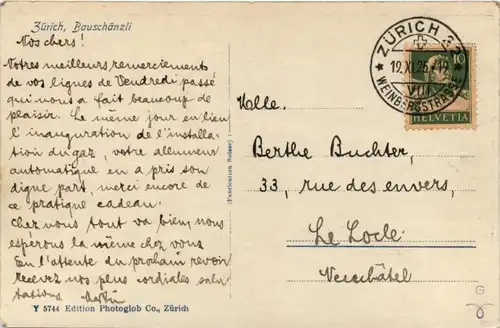 Zürich, Bauschänzli
Mes chers!
Votres meilleurs remerciements
de vos lignes de Vendredi passé
qui nous a fait beaucoup de
plaisir. Le même jour en lieu
l'inauguration de l'installa-
tion du gaz, votre allumeur
automatique en a pris son
digne part, merci encore de
ce pratique cadeau.
Chez nous tout va bien, nous
espérons la même chez vous
En l'attente du prochain revoir
recevez nos plus cordiales salu-
tations
Y 5744 Edition Photoglob Co., Zürich
(Fabrication Suisse)
ZÜRICH 22
19.XI.26
VIII
WEINBERGSTRASSE
10
HELVETIA
Mlle.
Berthe Buchter,
33, rue des envers,
Le Locle
Neuchâtel
G